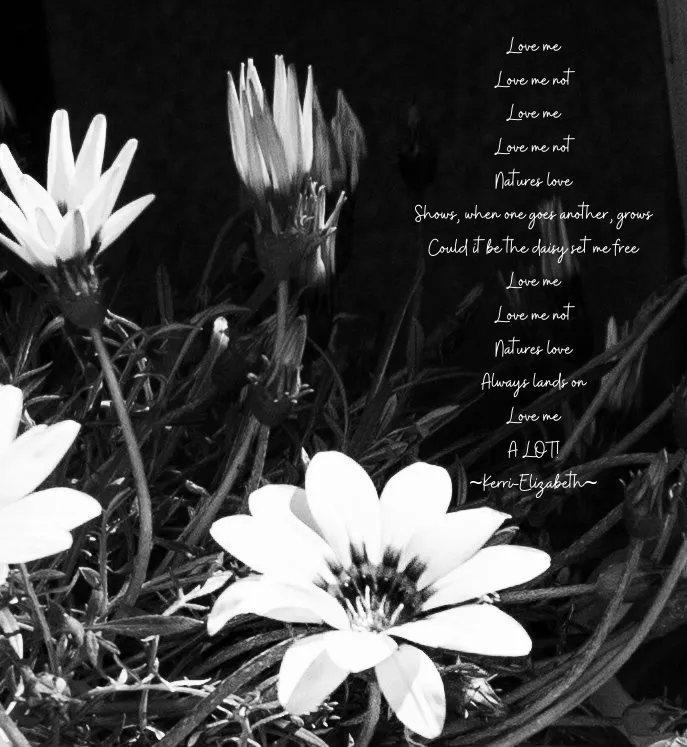 Love me
Love me not
Love me
Love me not
Natures love
Shows, when one goes another, grows
Could it be the daisy set me free
Love me
Love me not
Natures love
Always lands on
Love me
A LOT!
~Kerri-Elizabeth~